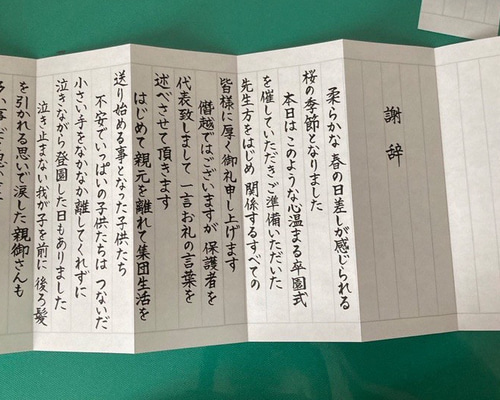 謝辞
柔らかな 春の日差しが感じられる
桜の季節となりました
本日は このような心温まる卒園式
を催していただきご準備いただいた
先生方をはじめ 関係するすべての
皆様に厚く御礼申し上げます
僭越ではございますが 保護者を
代表致しまして 一言お礼の言葉を
述べさせて頂きます
はじめて親元を離れて集団生活を
送り始める事となった子供たち
不安でいっぱいの子供たちは つないだ
小さい手をなかなか離してくれずに
泣きながら登園した日もありました
泣き止まない我が子を前に 後ろ髪
を引かれる思いで涙した親御さんも